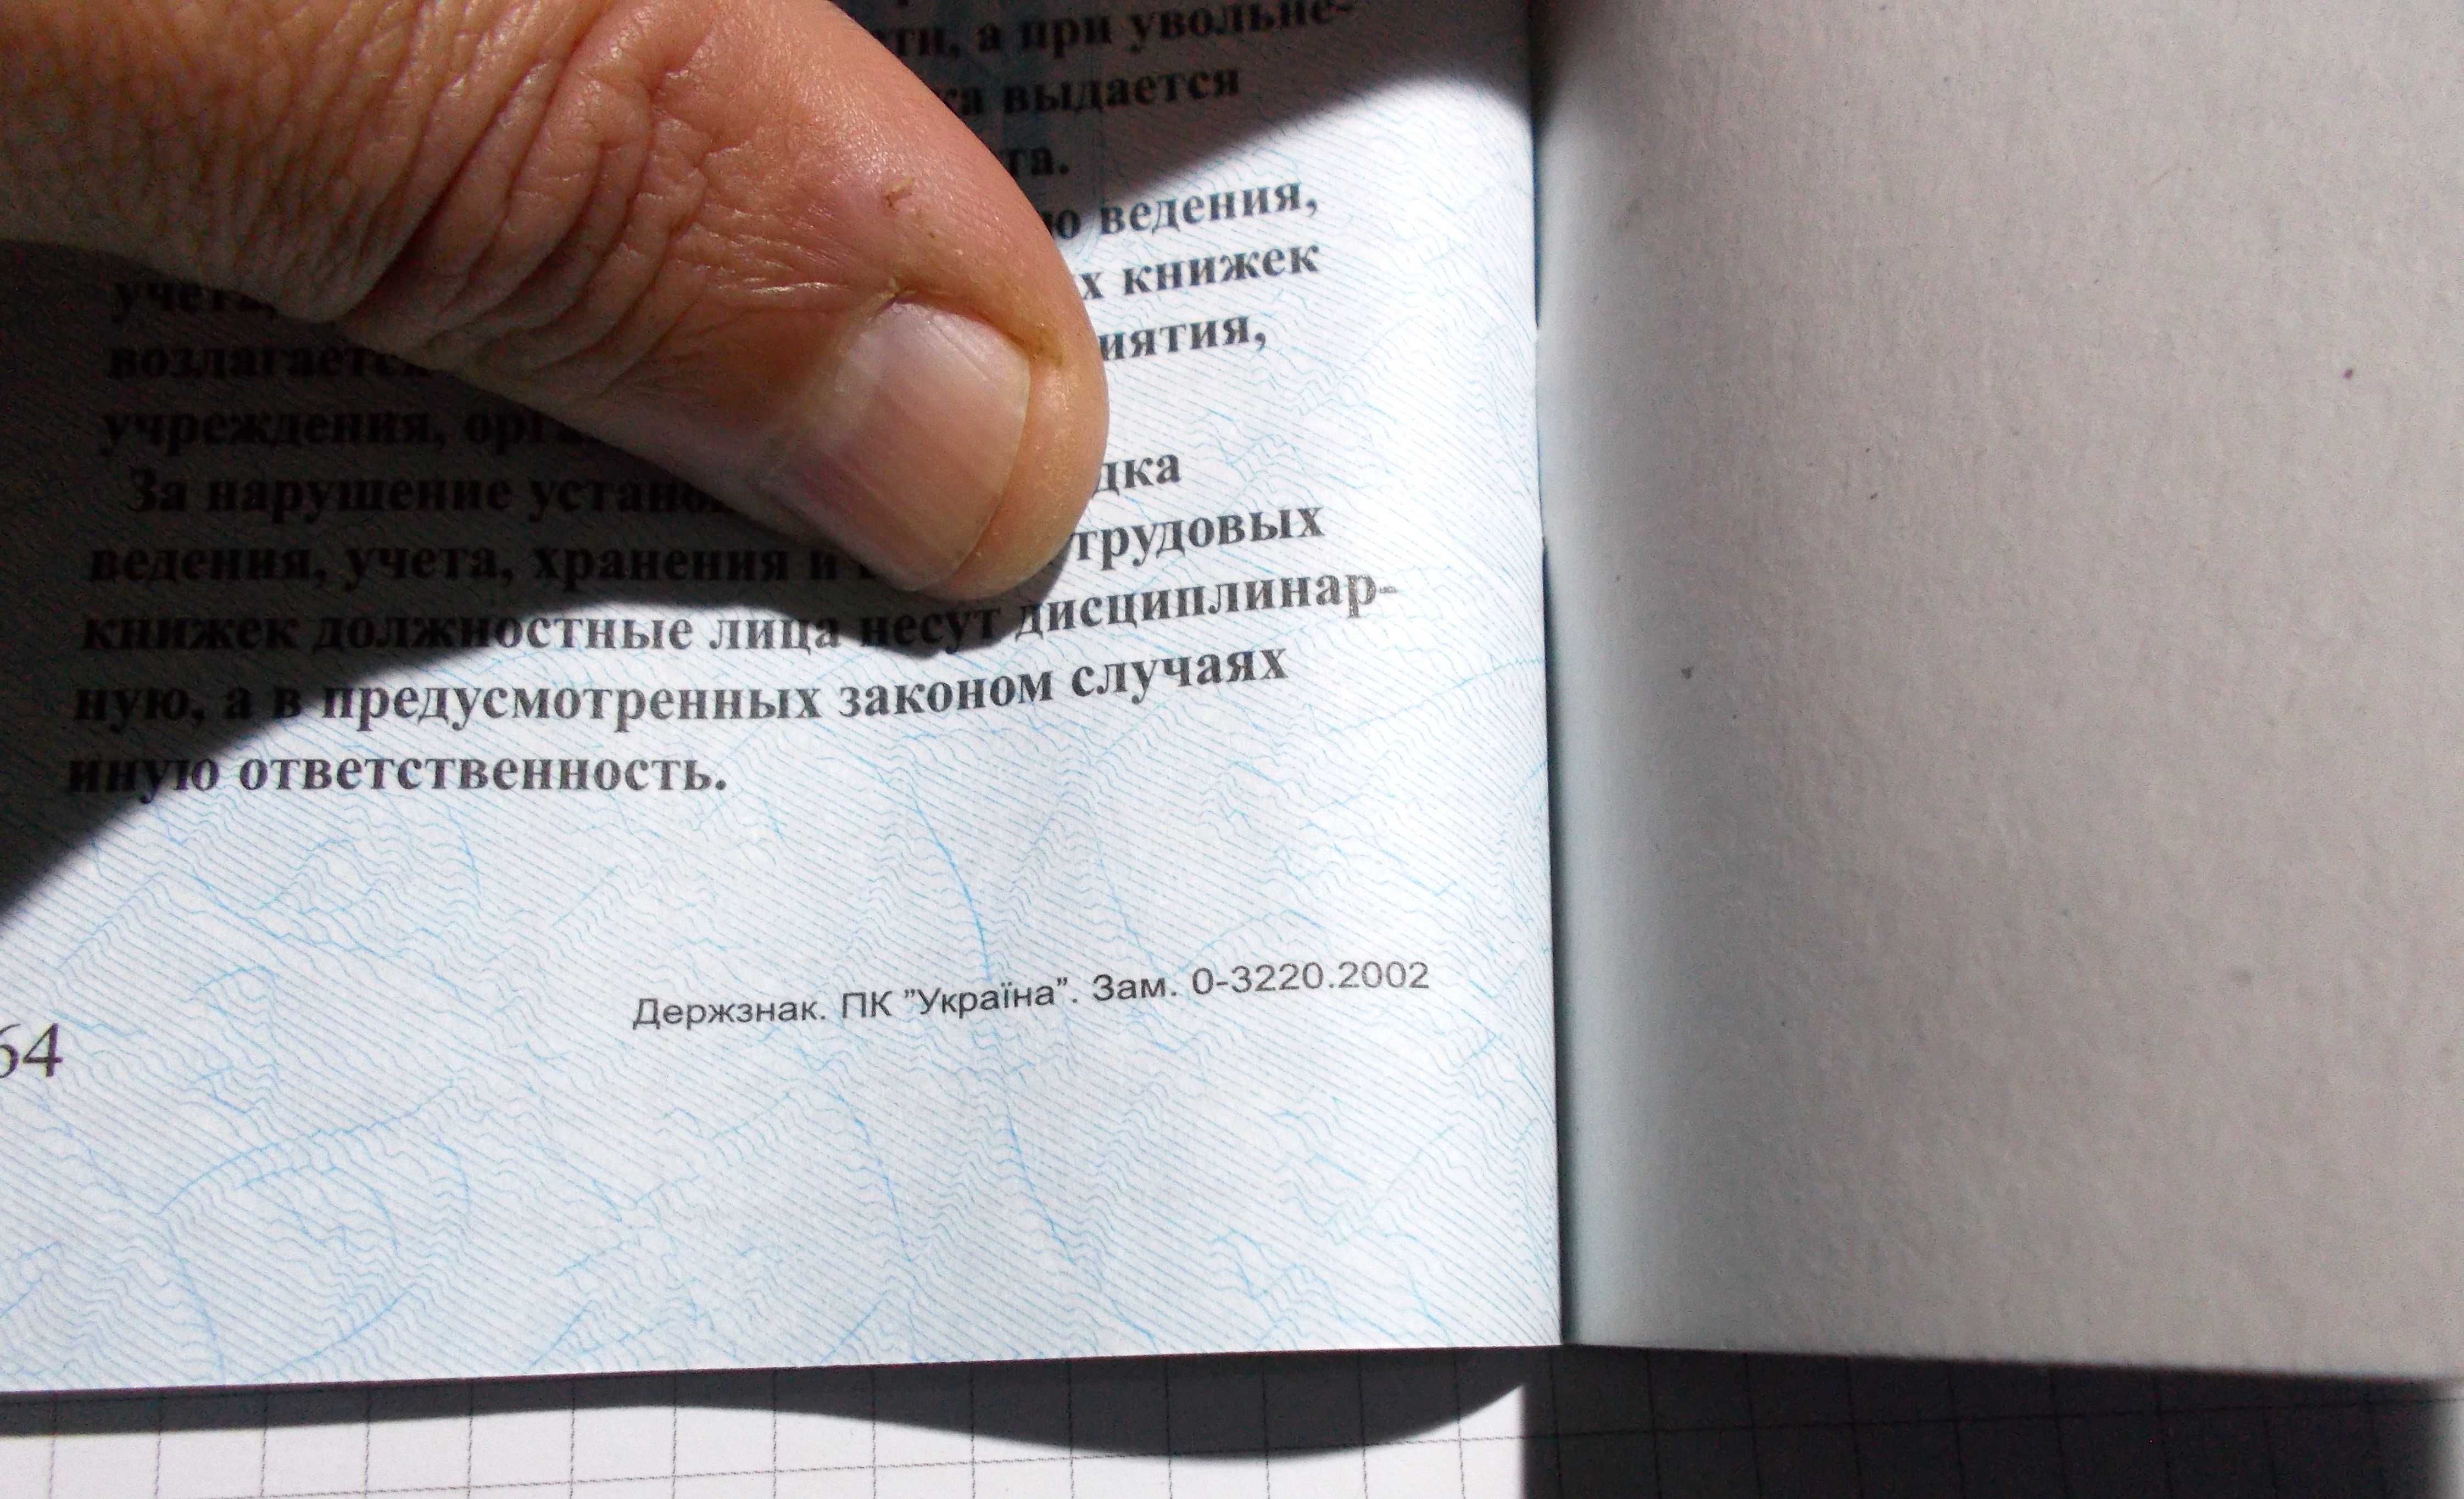 а при увольне-
выдается
ведения,
книжек
возлагается
учреждения,
За нарушение
ведения, учета, хранения и трудовых
книжек должностные лица несут дисциплинар-
ную, а в предусмотренных законом случаях
иную ответственность.
Держзнак. ПК "Україна". Зам. 0-3220.2002
64